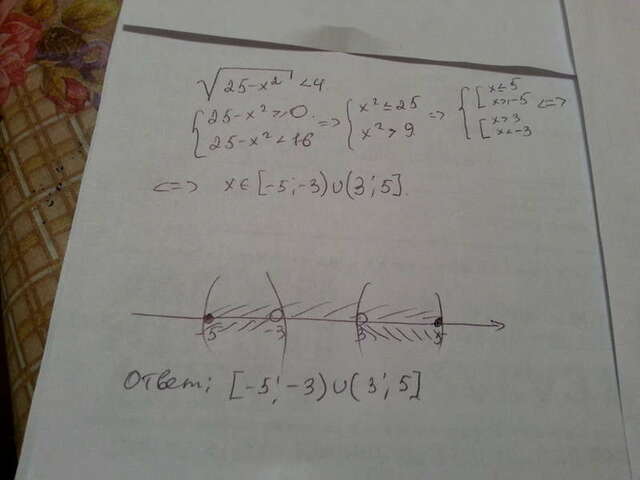 √25-x² < 4
{25-x² ≥ 0. => {x² ≤ 25 => {[x ≤ 5
25-x² < 16 x² > 9 x ≥ -5 <=>
[x > 3
x < -3
<=> x ∈ [-5; -3) ∪ (3; 5].
-5 -3 3 5
Ответ: [-5; -3) ∪ (3; 5]